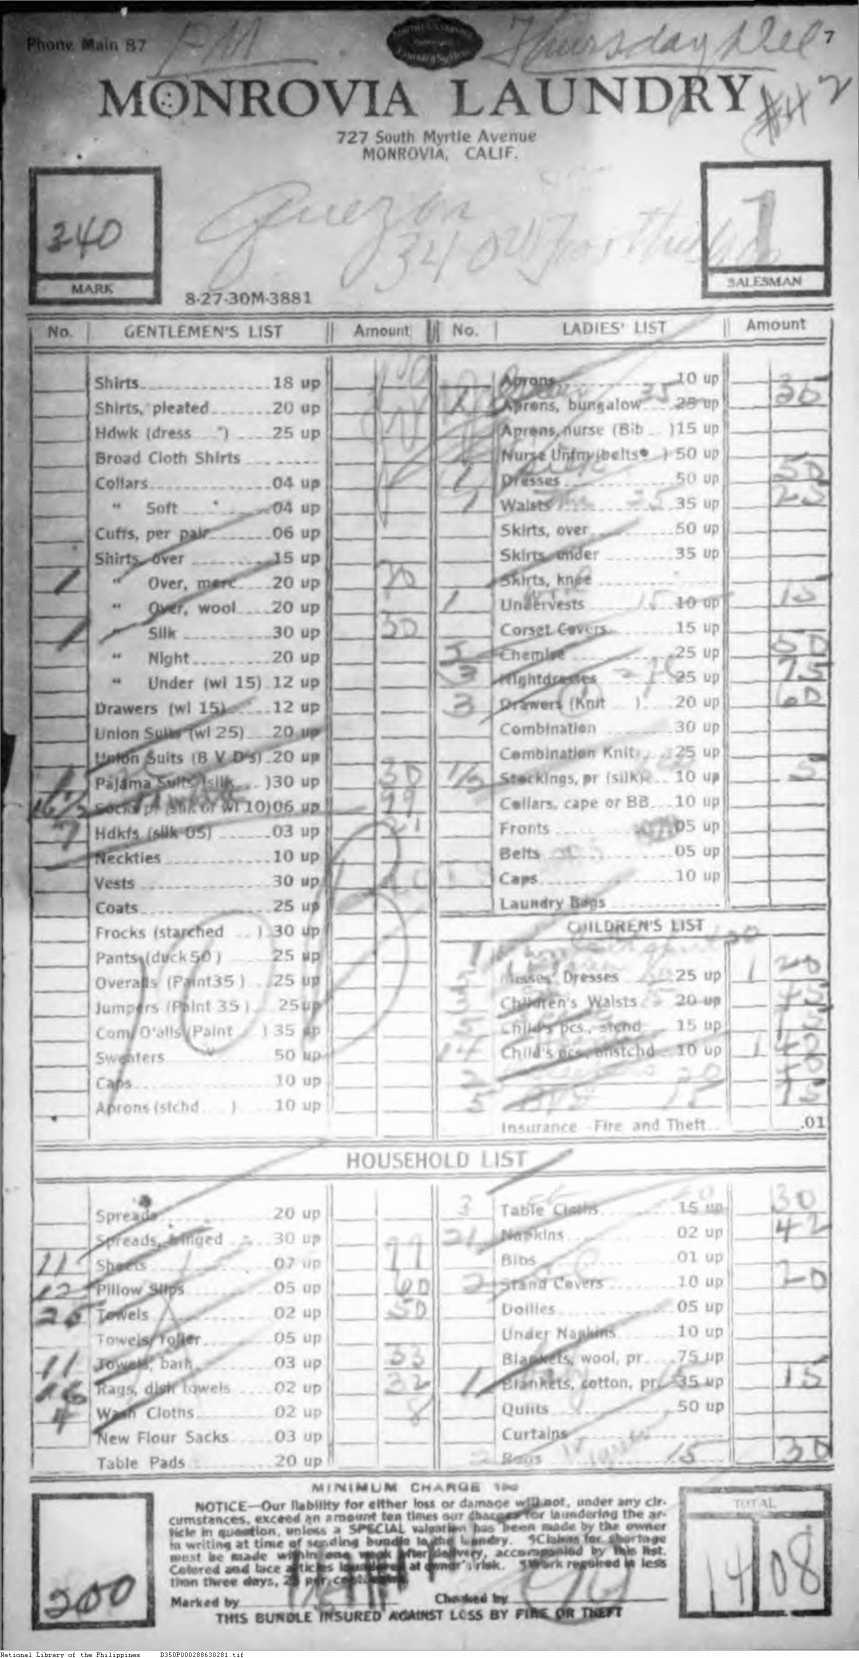 Phone Main 87 PM Thursday Del 7
MONROVIA LAUNDRY #42
727 South Myrtle Avenue
MONROVIA, CALIF.
Quezon
340 W
240
MARK
1
SALESMAN
8-27-30M-3881
No. GENTLEMEN'S LIST Amount
Shirts 18 up
Shirts, pleated 20 up
Hdwk (dress ") 25 up
Broad Cloth Shirts
Collars 04 up
" Soft " 04 up
Cuffs, per pair 06 up
Shirts, over 15 up
1 " Over, merc 20 up 20
" Over, wool 20 up
1 " Silk 30 up 30
" Night 20 up
" Under (wl 15) 12 up
Drawers (wl 15) 12 up
Union Suits (wl 25) 20 up
Union Suits (B V D's) 20 up
1 Pajama Suits (silk ) 30 up 30
16 1/2 Socks pr (silk or wl 10) 06 up 99
7 Hdkfs (silk 05) 03 up 21
Neckties 10 up
Vests 30 up
Coats 25 up
Frocks (starched ) 30 up
Pants (duck 50) 25 up
Overalls (Paint 35) 25 up
Jumpers (Paint 35) 25 up
Com. O'alls (Paint ) 35 up
Sweaters 50 up
Caps 10 up
Aprons (stchd ) 10 up
No. LADIES' LIST Amount
Aprons 10 up 35
1 Aprons, bungalow 35 25 up
Aprons, nurse (Bib ) 15 up
Nurse Unfm (belts ) 50 up
1 Dresses silk 50 up 50
1 Waists 25 35 up 25
Skirts, over 50 up
Skirts, under 35 up
Skirts, knee
1 Undervests 15 10 up 15
Corset Covers 15 up
Chemise 25 up 50
3 Nightdresses 25 up 75
3 Drawers (Knit ) 20 up 60
Combination 30 up
Combination Knit 25 up
1/2 Stockings, pr (silk) 10 up 5
Collars, cape or BB 10 up
Fronts 05 up
Belts 05 up
Caps 10 up
Laundry Bags
CHILDREN'S LIST
Misses' Dresses 25 up
Children's Waists 20 up
Child's pcs., stchd 15 up
14 Child's pcs., unstchd 10 up 1 40
2
5 15
Insurance - Fire and Theft .01
HOUSEHOLD LIST
Spreads 20 up
Spreads, fringed 30 up
11 Sheets 07 up 77
12 Pillow Slips 05 up 60
25 Towels 02 up 50
Towels, roller 05 up
11 Towels, bath 03 up 33
16 Rags, dish towels 02 up 32
4 Wash Cloths 02 up 8
New Flour Sacks 03 up
Table Pads 20 up
3 Table Cloths 15 up 30
21 Napkins 02 up 42
Bibs 01 up
2 Stand Covers 10 up 20
Doilies 05 up
Under Napkins 10 up
Blankets, wool, pr. 75 up
1 Blankets, cotton, pr. 35 up 15
Quilts 50 up
Curtains
2 Rugs 15 30
MINIMUM CHARGE
NOTICE—Our liability for either loss or damage will not, under any cir-
cumstances, exceed an amount ten times our charges for laundering the ar-
ticle in question, unless a SPECIAL valuation has been made by the owner
in writing at time of sending bundle to the laundry. Claims for shortage
must be made within one week after delivery, accompanied by this list.
Colored and lace articles laundered at owner's risk. Work required in less
than three days, 25 per cent
Marked by Checked by
THIS BUNDLE INSURED AGAINST LOSS BY FIRE OR THEFT
200
TOTAL
14 08
National Library of the Philippines D350P000288630281.tif